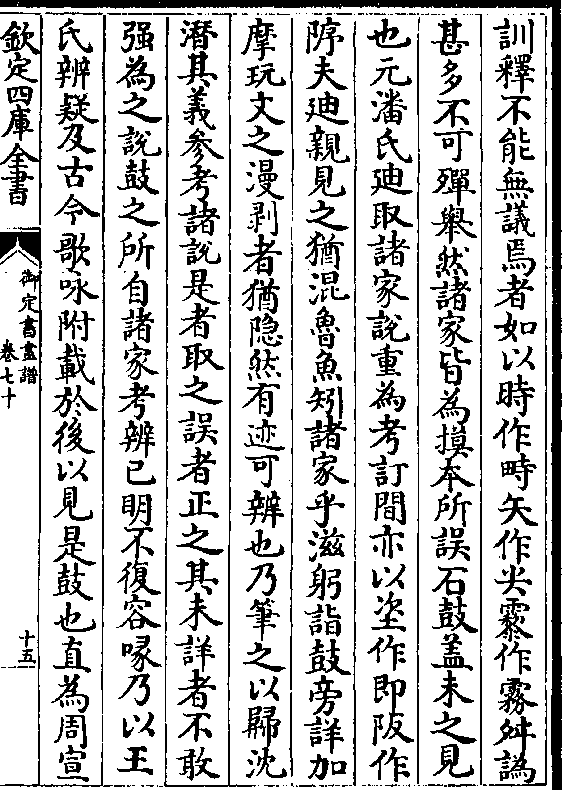 訓釋不能無議焉者如以時作畤矢作尖作霧舛譌
甚多不可殫舉然諸家皆為摸本所誤石鼓盖未之見
也元潘氏廸取諸家說重為考訂間亦以垐作即阪作
夫廸親見之猶混魯魚矧諸家乎滋躬詣鼓旁詳加
摩玩文之漫剥者猶隐然有迹可辨也乃筆之以歸沈
潛其義參考諸說是者取之誤者正之其未詳者不敢
强為之說鼓之所自諸家考辨已明不復容喙乃以王
氏辨疑及古今歌咏附載於後以見是鼓也直為周宣
欽定四庫全書
御定書畫譜
卷七十
十五